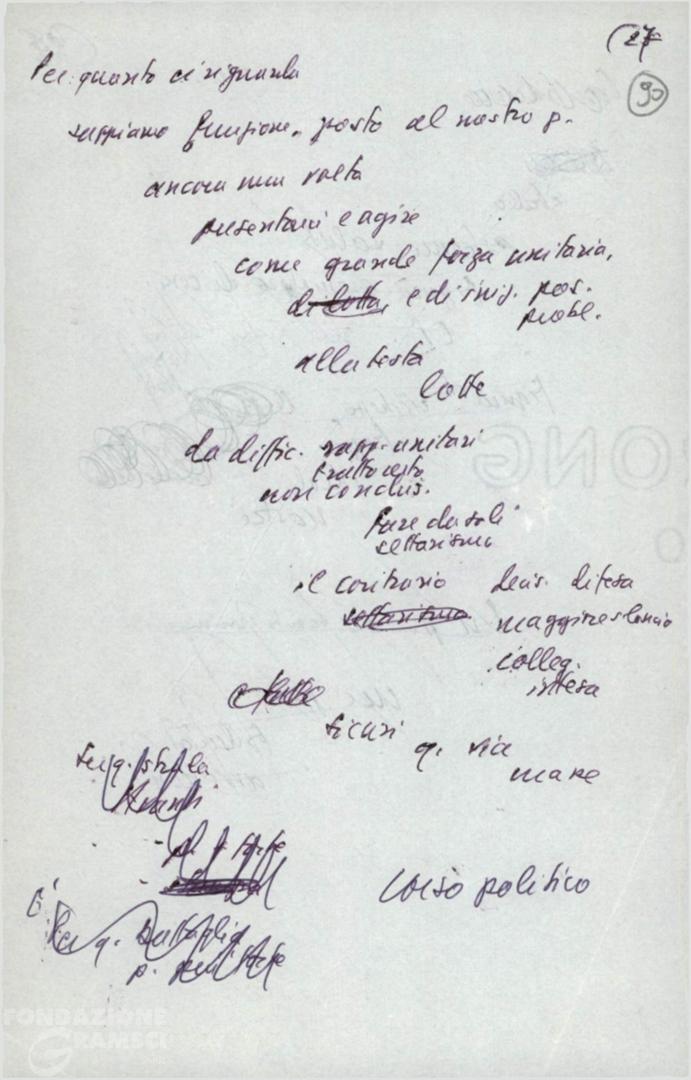 27
90
Per quanto ci riguarda
sappiamo funzione, posto al nostro p.
ancora una volta
presentarci e agire
come grande forza unitaria,
di lotta, e di iniz. pos.
probl.
alla testa
lotte
da diffic. rapp. unitari
non conclus.
fare da soli
settarismo
il contrario decis. difesa
settarismo maggiore slancio
colleg.
intesa
sicuri
q. via
mare
Su q. strada
Avanti
p. forte
corso politico
È
Per q. battaglia
p.
FONDAZIONE
GRAMSCI